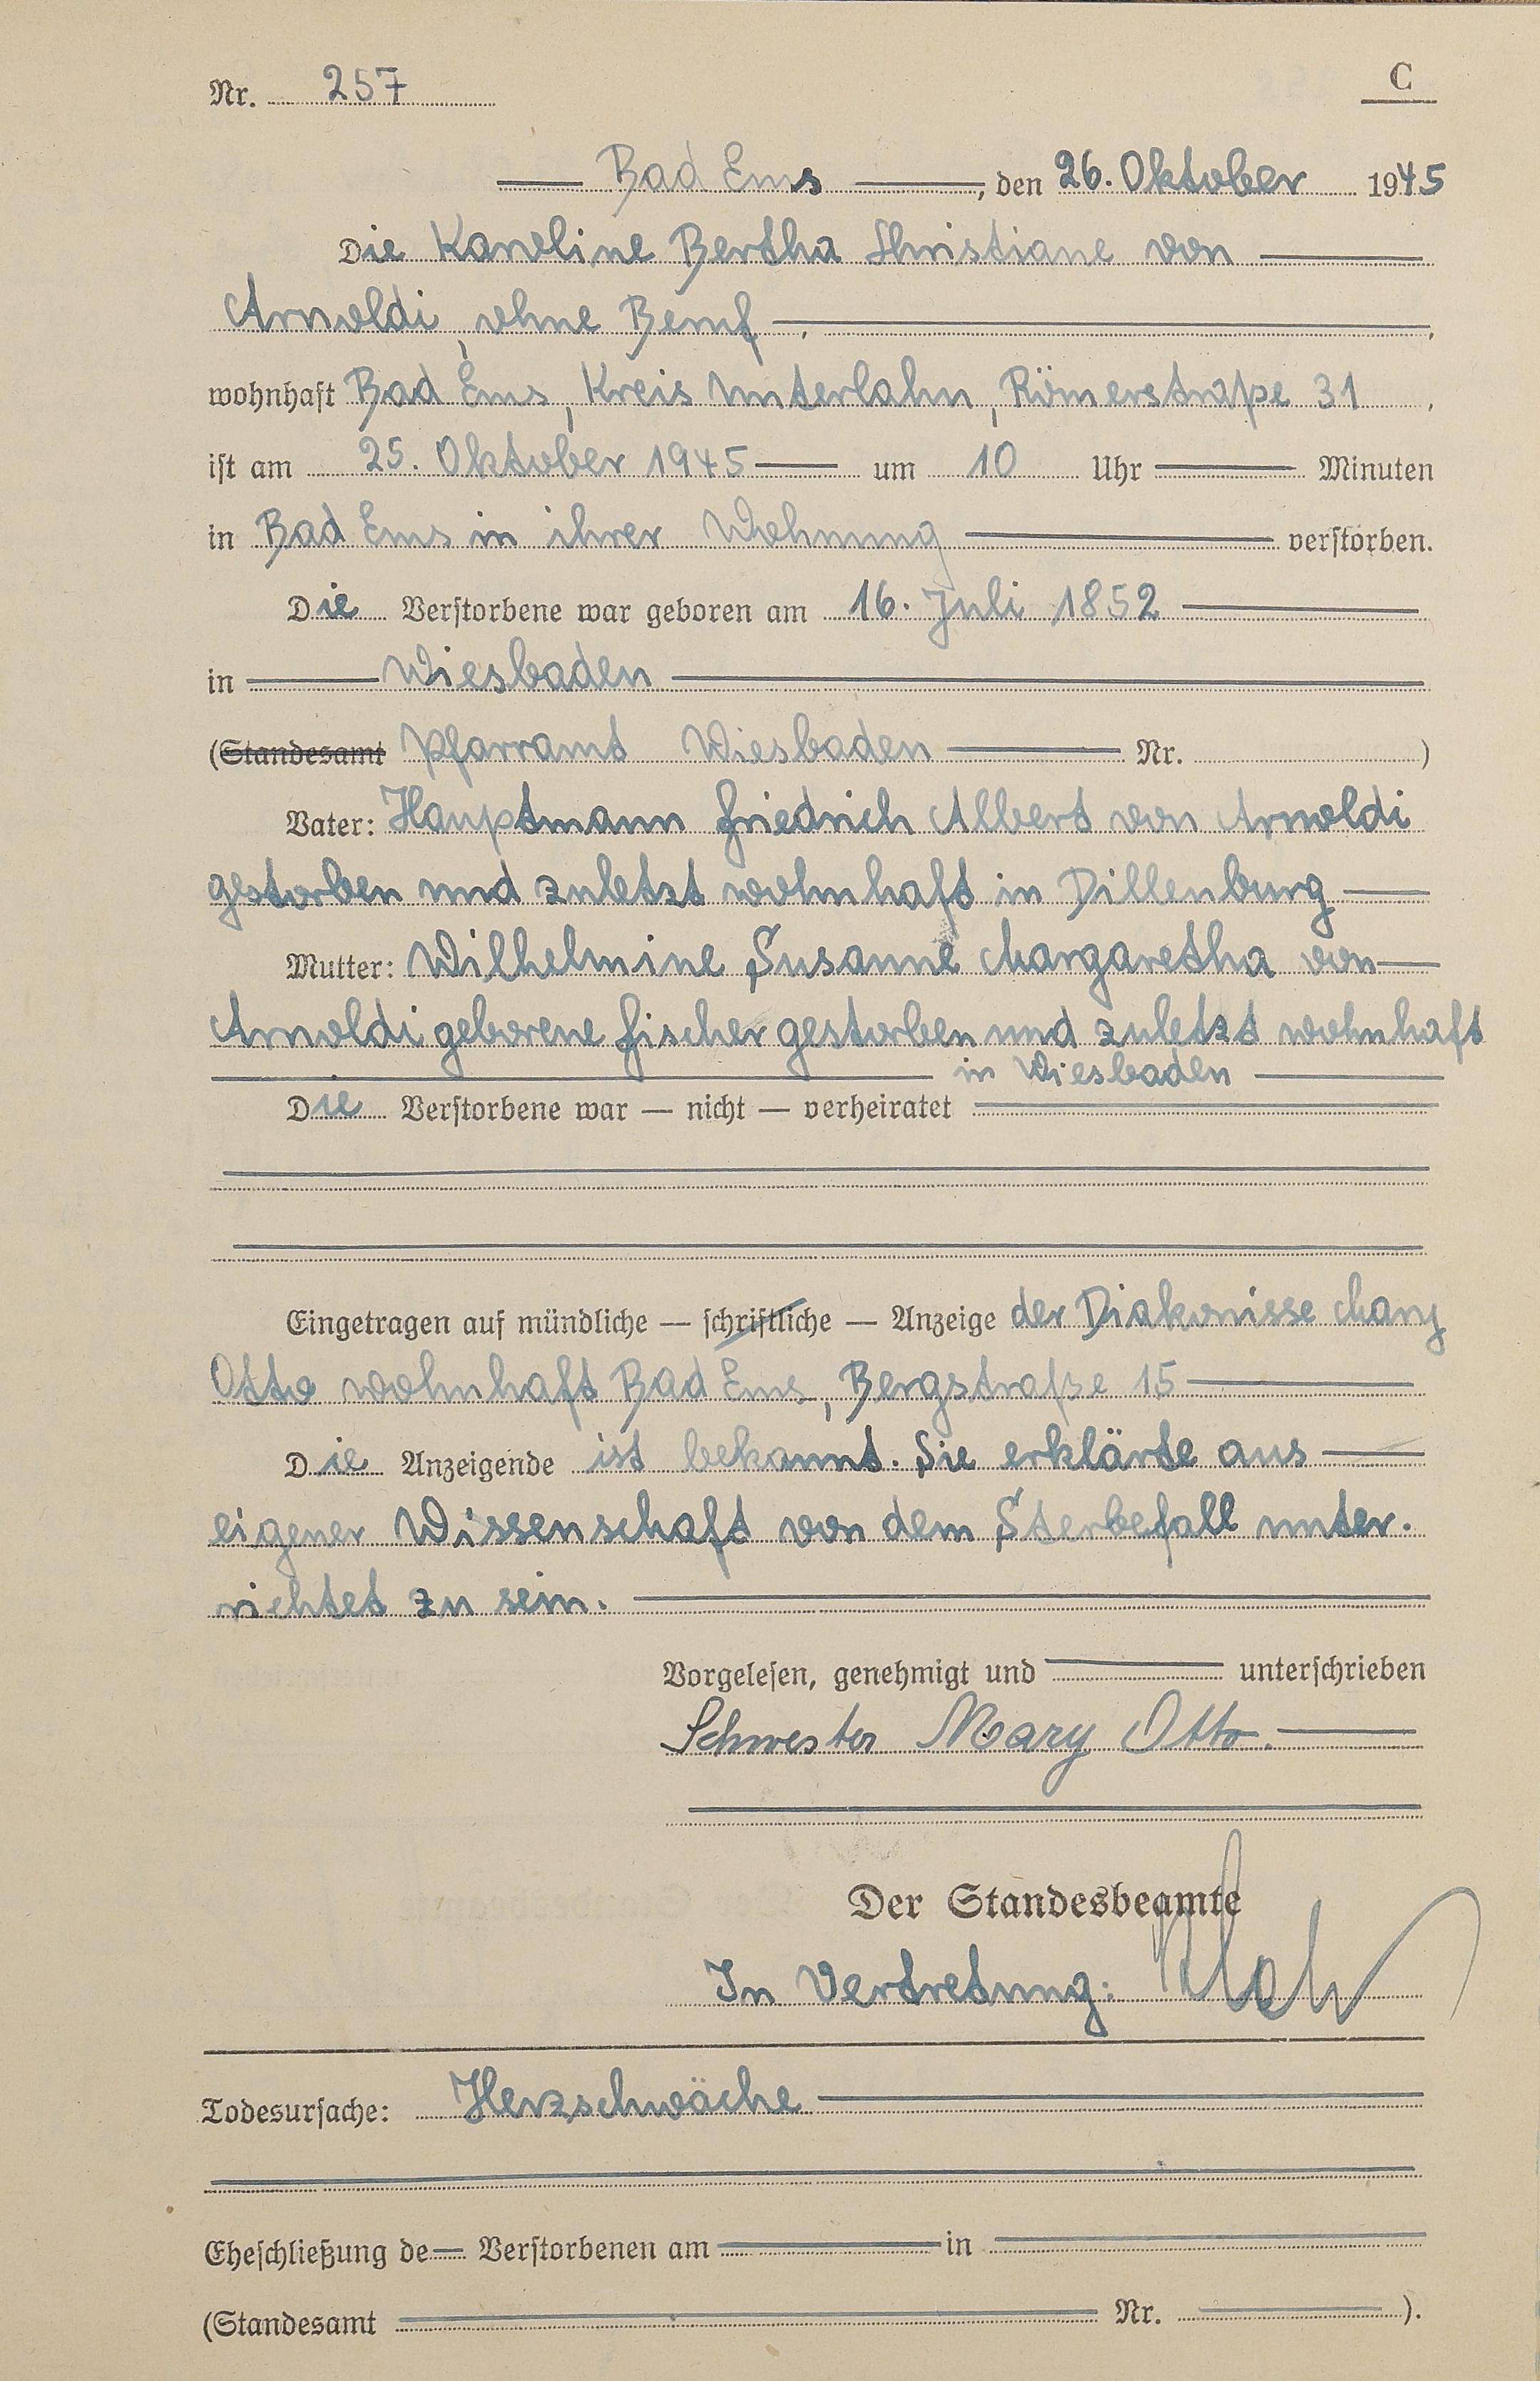 Nr. 257
C
Bad Ems, den 26. Oktober 1945
Die Karoline Bertha Christiane von
Arnoldi, ohne Beruf,
wohnhaft Bad Ems, Kreis Unterlahn, Römerstraße 31,
ist am 25. Oktober 1945 um 10 Uhr Minuten
in Bad Ems in ihrer Wohnung verstorben.
Die Verstorbene war geboren am 16. Juli 1852
in Wiesbaden
(Standesamt Pfarramt Wiesbaden Nr. )
Vater: Hauptmann Friedrich Albert von Arnoldi
gestorben und zuletzt wohnhaft in Dillenburg
Mutter: Wilhelmine Susanne Margaretha von
Arnoldi geborene Fischer gestorben und zuletzt wohnhaft
in Wiesbaden
Die Verstorbene war — nicht — verheiratet
Eingetragen auf mündliche — schriftliche — Anzeige der Diakonisse Mary
Otto wohnhaft Bad Ems, Bergstraße 15
Die Anzeigende ist bekannt. Sie erklärte aus
eigener Wissenschaft von dem Sterbefall unter-
richtet zu sein.
Vorgelesen, genehmigt und unterschrieben
Schwester Mary Otto.
Der Standesbeamte
In Vertretung:
Todesursache: Herzschwäche
Eheschließung de— Verstorbenen am in
(Standesamt Nr. ).